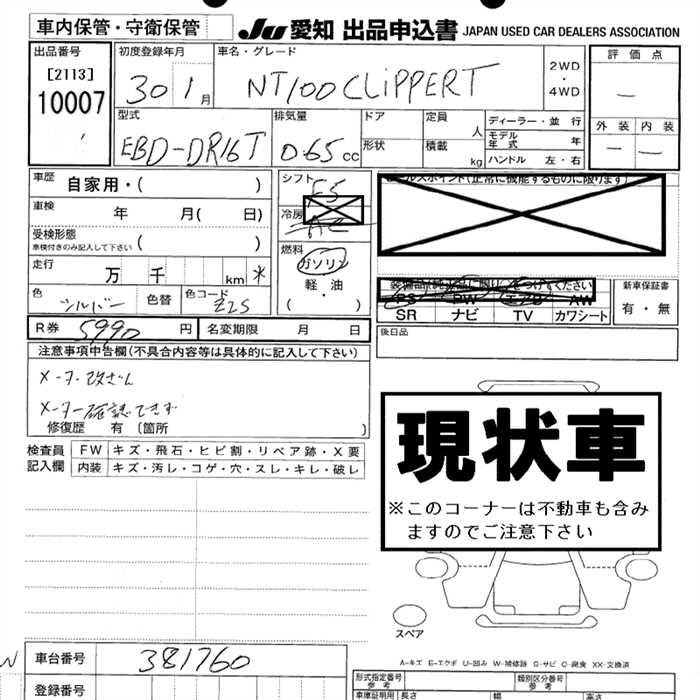 車内保管・守衛保管 JU 愛知 出品申込書 JAPAN USED CAR DEALERS ASSOCIATION
出品番号 初度登録年月 車名・グレード 2WD・4WD 評価点
[2113]
10007 30 1月 NT100CLiPPERT —
型式 排気量 ドア 定員 人 ディーラー・並行 外装 内装
EBD-DR16T 0.65cc 形状 積載 kg モデル年式 年 — —
ハンドル 左・右
車歴 自家用・( ) シフト F5
車検 年 月( 日) 冷房 AC
受検形態 ( )
車検付きのみ記入して下さい
燃料
ガソリン
軽・油
( )
走行 万 千 km *
色 シルバー 色替 色コード Z2S
R券 5990 円 名変期限 月 日
(正常に機能するものに限ります)
PS PW エアB AW
SR ナビ TV カワシート
新車保証書
有・無
後日品
注意事項申告欄(不具合内容等は具体的に記入して下さい)
メーター改ざん
メーター確認できず
修復歴 有 〔箇所 〕
検査員記入欄 FW キズ・飛石・ヒビ割・リペア跡・X要
内装 キズ・汚レ・コゲ・穴・スレ・キレ・破レ
現状車
※このコーナーは不動車も含みますのでご注意下さい
スペア
A-キズ E-エクボ U-凹み W-補修跡 S-サビ C-腐食 XX-交換済
車台番号 381760
登録番号
形式指定番号 参考 類別区分番号 参考
車庫証明用 長さ 幅 高さ